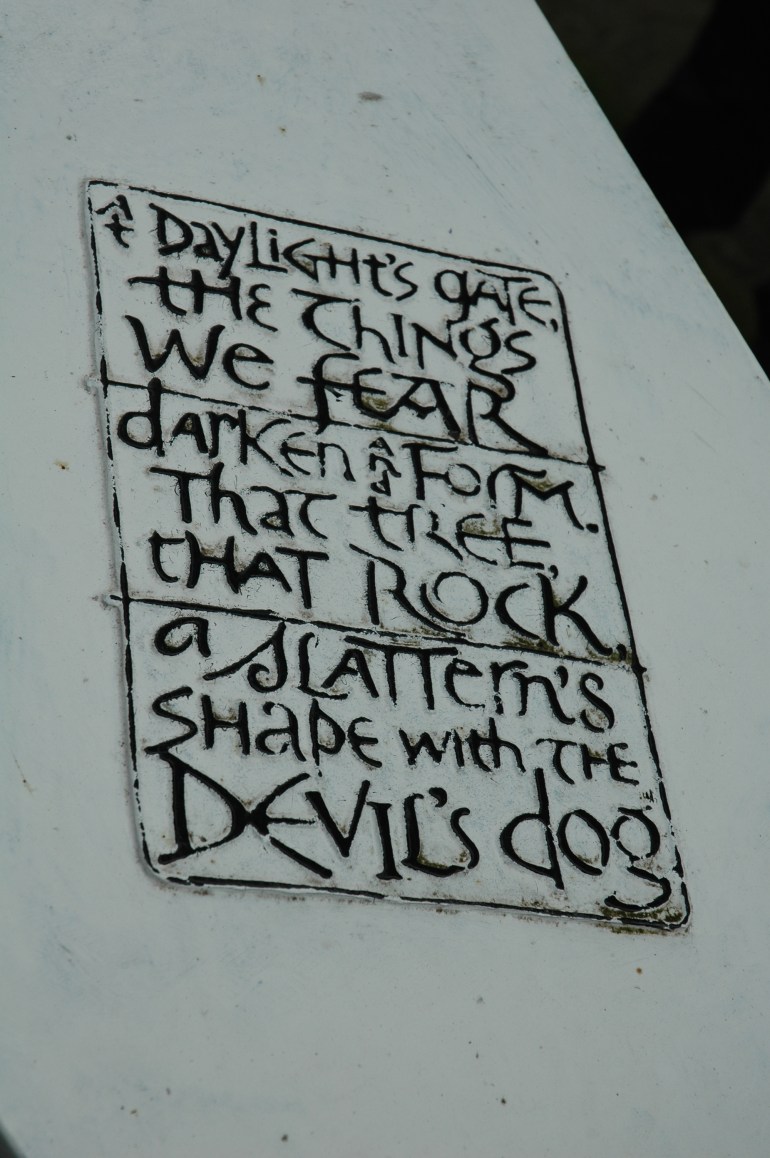 At DayLiGHt's gATE,
tHE ThiNgs
We fEAR
dARKEn AND FoRM.
That tREE,
tHAT ROCK,
a sLATTern's
SHaPE with THE
DEVIL's dog